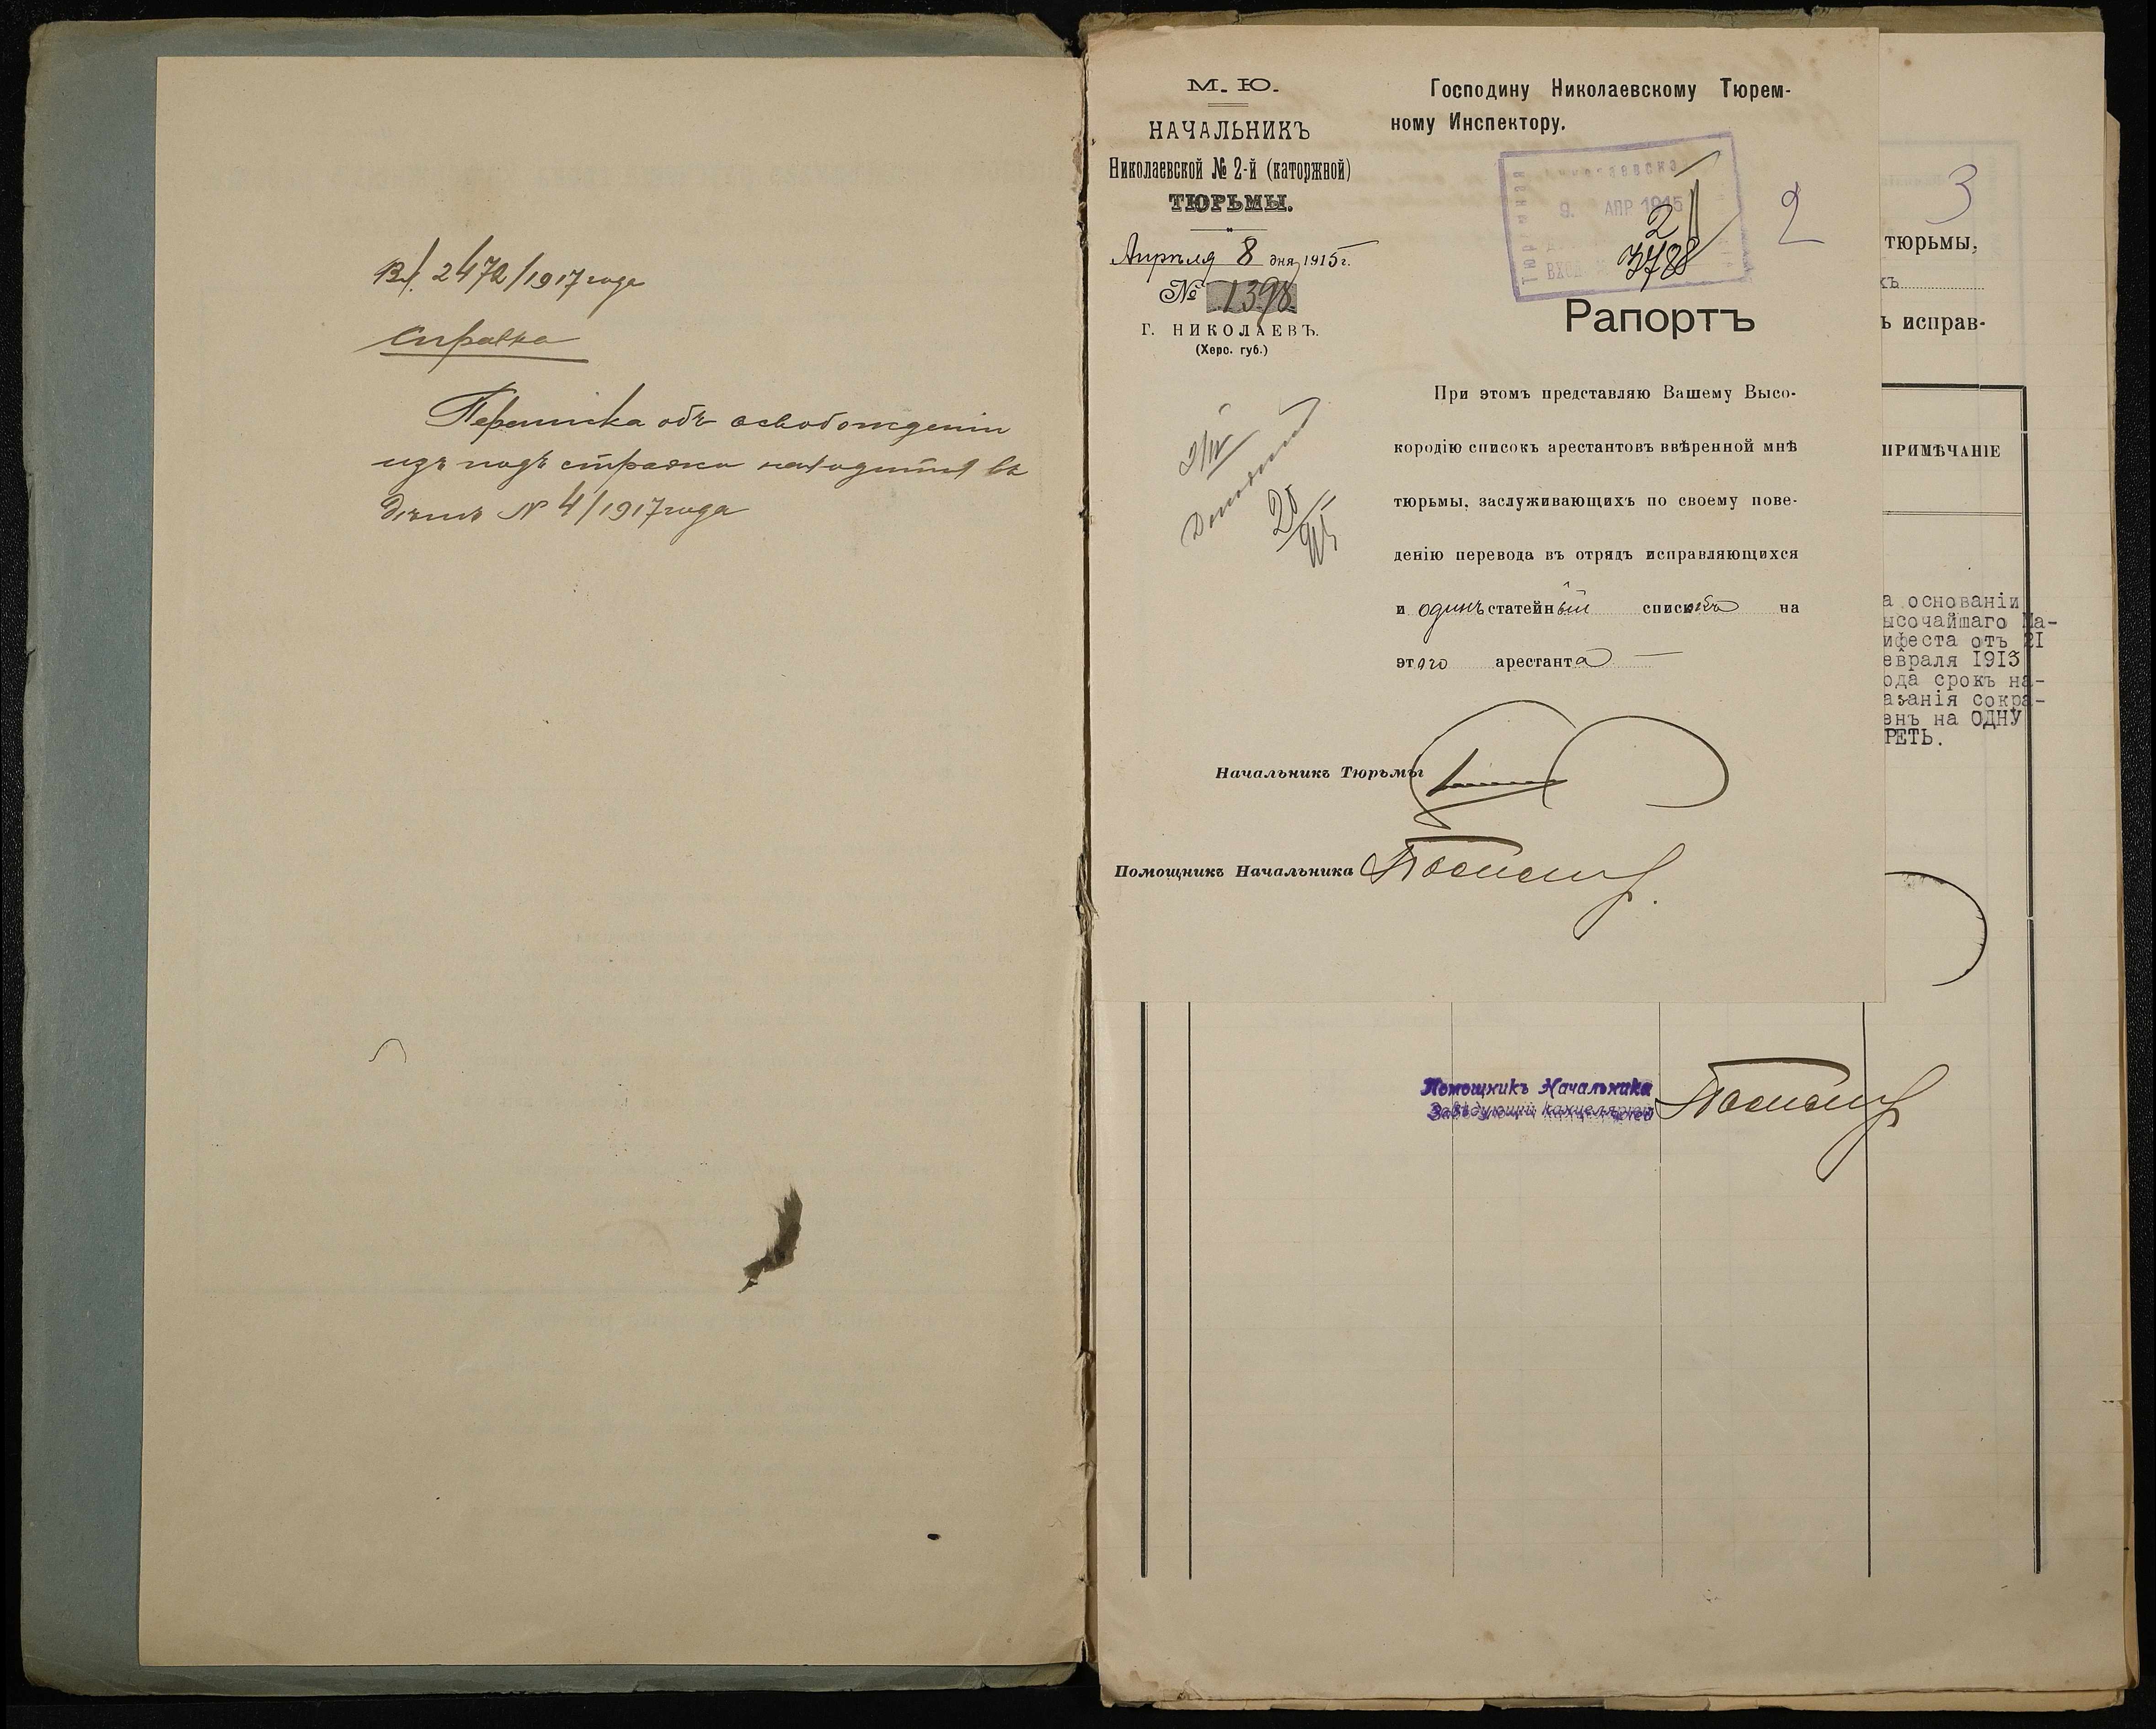 Вх. 2472/1917 года
Справка
Переписка объ освобожденіи
изъ подъ стражи находится въ
дѣлѣ № 4/1917 года
М. Ю.
НАЧАЛЬНИКЪ
Николаевской № 2-й (каторжной)
ТЮРЬМЫ.
Апрѣля 8 дня 1915 г.
№ 1398.
Г. НИКОЛАЕВЪ.
(Херс. губ.)
Господину Николаевскому Тюрем-
ному Инспектору.
9. АПР 1915
2
3788
2
Рапортъ
При этомъ представляю Вашему Высо-
кородію списокъ арестантовъ ввѣренной мнѣ
тюрьмы, заслуживающихъ по своему пове-
денію перевода въ отрядъ исправляющихся
и одинъ статейный списокъ на
этого арестанта
Начальникъ Тюрьмы
Помощникъ Начальника
3
тюрьмы,
хъ
ь исправ-
ПРИМѢЧАНІЕ
а основаніи
ысочайшаго Ма-
ифеста отъ 21
евраля 1913
ода срокъ на-
азанія сокра-
енъ на ОДНУ
РЕТЬ.
Помощникъ Начальника
Завѣдующій канцеляріей